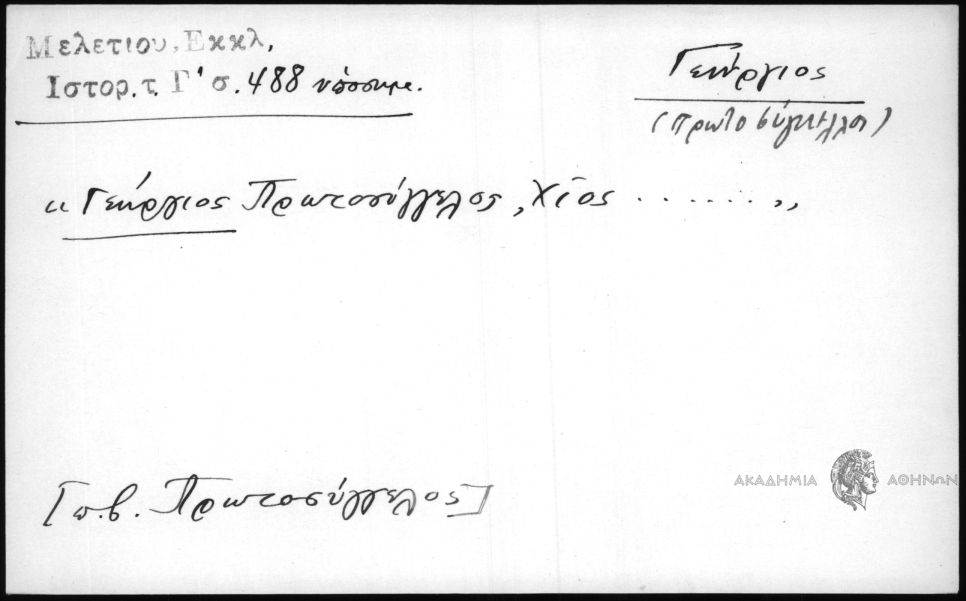 Μελετίου, Εκκλ,
Ιστορ. τ. Γ' σ. 488 υποσημ.
Γεώργιος
(Πρωτοσύγκελλος)
“Γεώργιος Πρωτοσύγγελος, Χίος . . . . . . ”
[π.β. Πρωτοσύγγελος]
ΑΚΑΔΗΜΙΑ ΑΘΗΝΩΝ